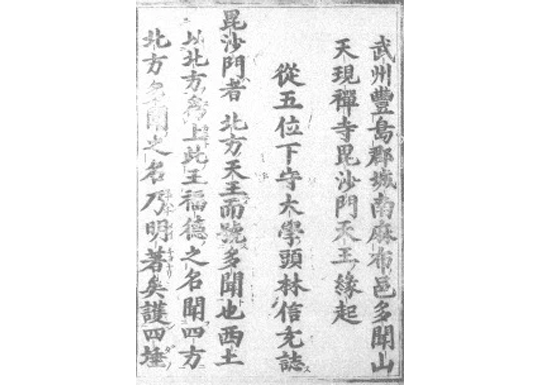 武州豐島郡城南麻布邑多聞山
天現禪寺毘沙門天王緣起
從五位下守大學頭林信充誌
毘沙門者北方天王而號多聞也西土
以北方爲上此王福德之名聞四方
北方多聞之名乃明著矣護四埵